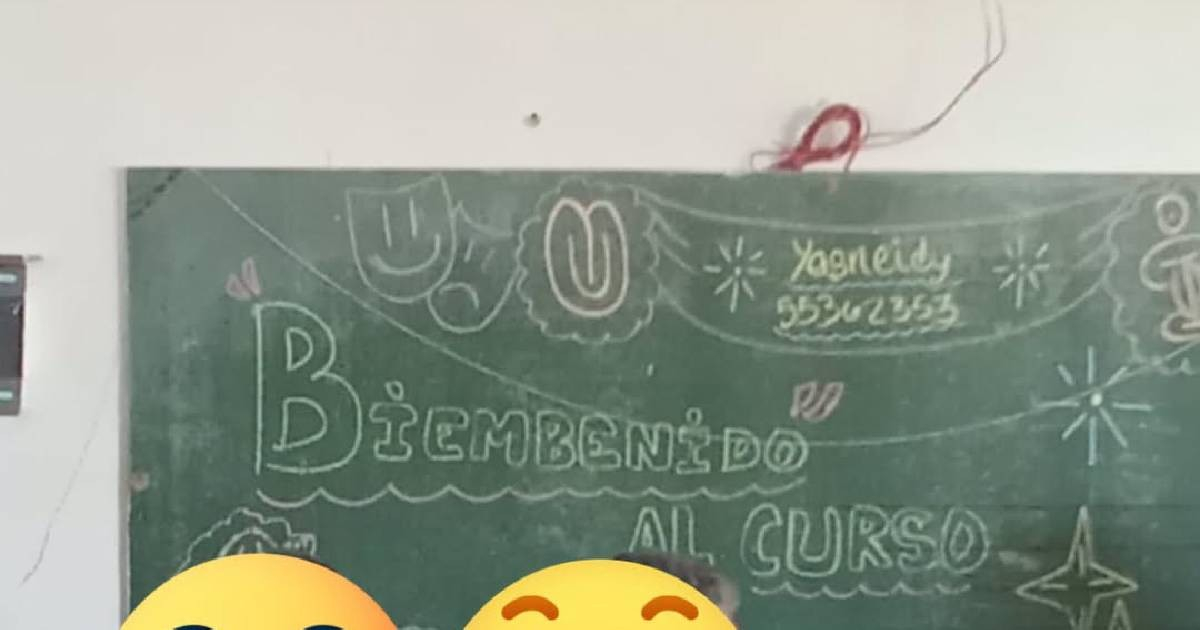 U
Yagneidy
55362353
BiEMBENiDO
AL CURSO